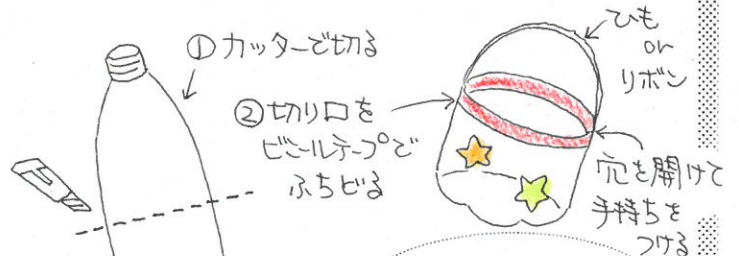 ①カッターで切る
②切り口を
ビニールテープで
ふちどる
ひも
or
リボン
穴を開けて
手持ちを
つける